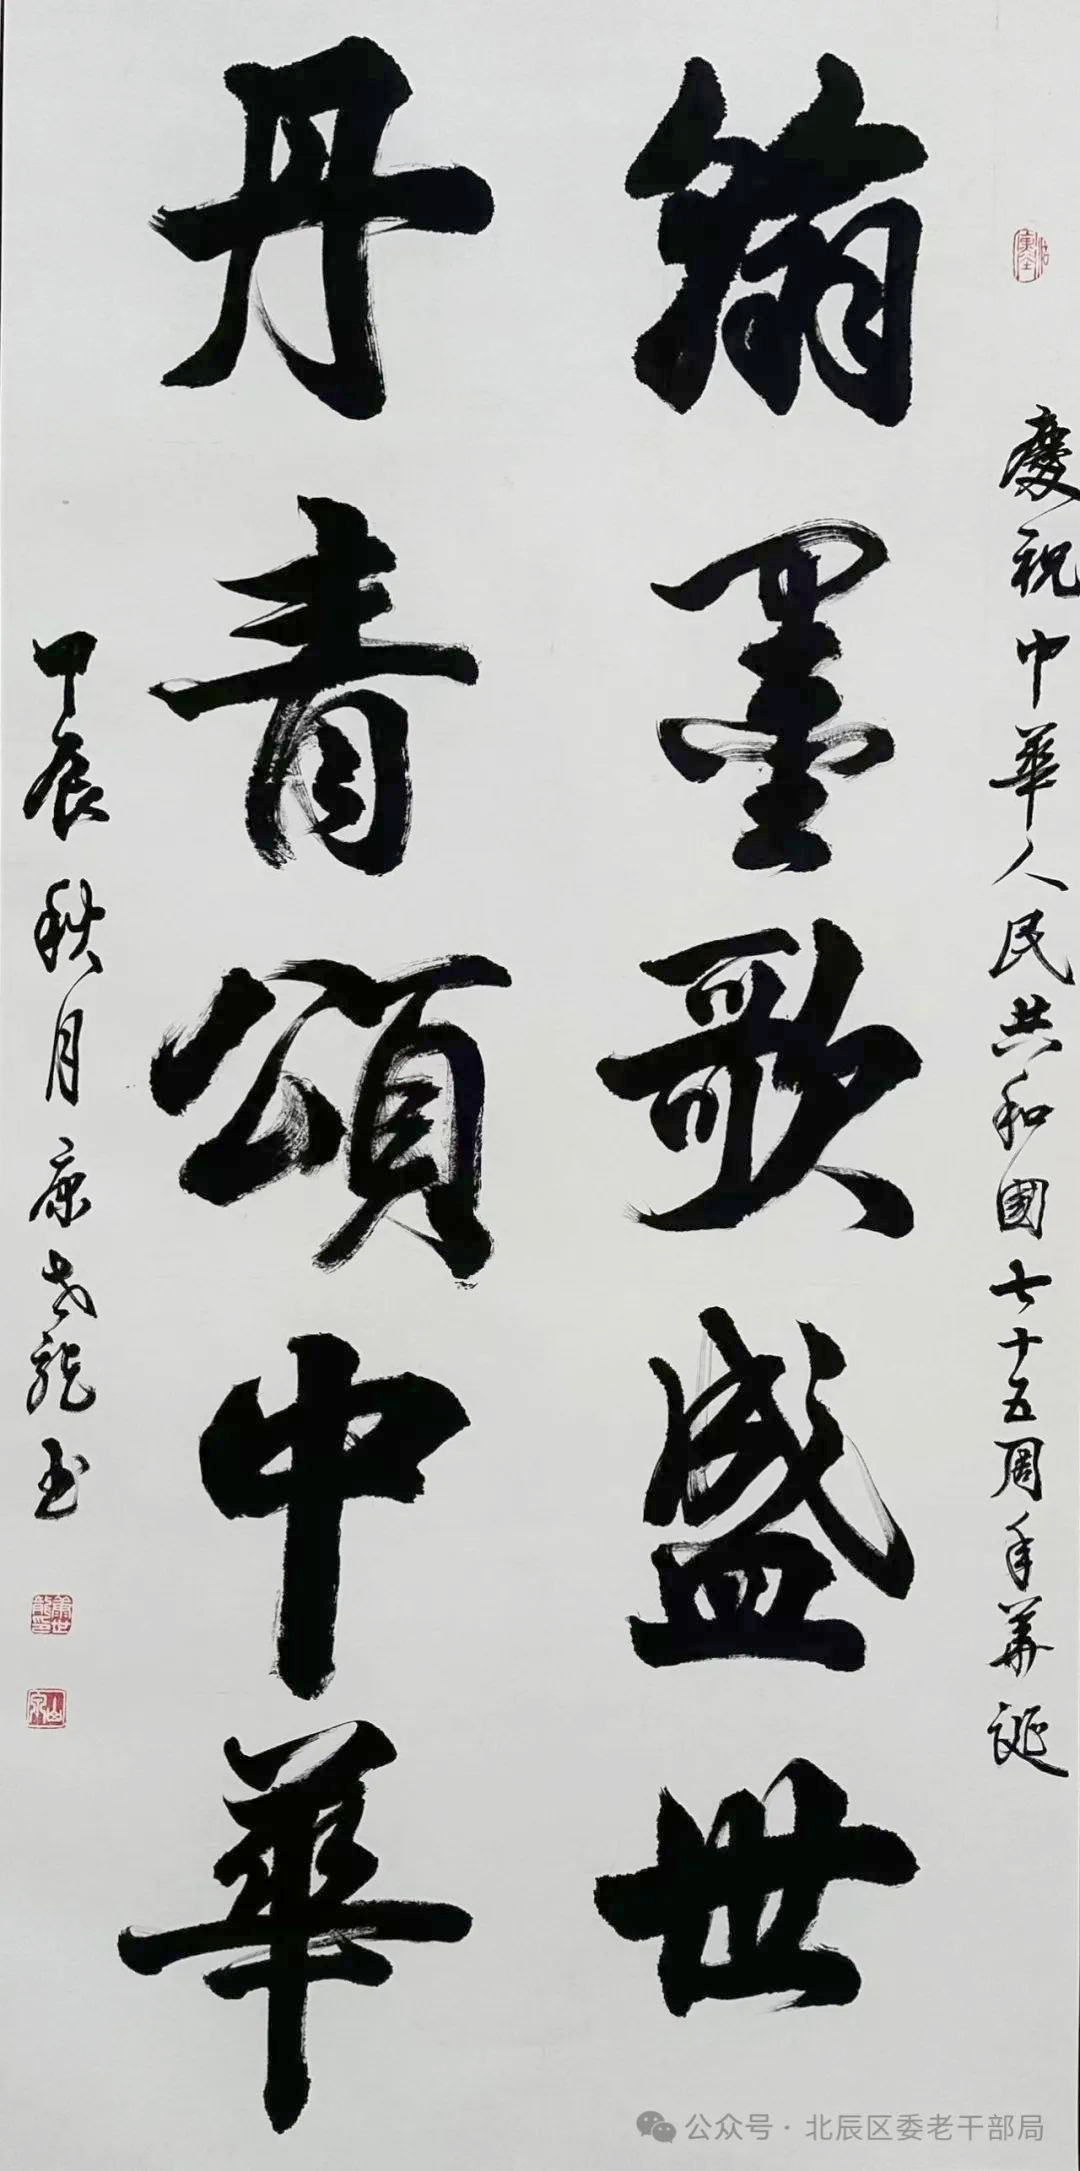 慶祝中華人民共和國七十五周年華誕
翰墨歌盛世
丹青頌中華
甲辰秋月康世龍书
康世龍印
公众号·北辰区委老干部局